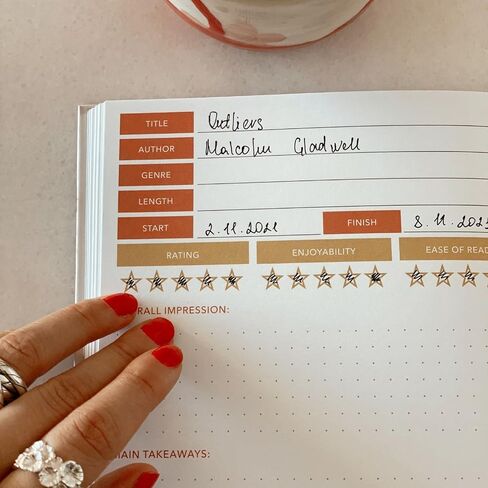 TITLE Outliers
AUTHOR Malcolm Gladwell
GENRE
LENGTH
START 2.11.2021 FINISH 8.11.202
RATING ENJOYABILITY EASE OF READ
RALL IMPRESSION:
MAIN TAKEAWAYS: